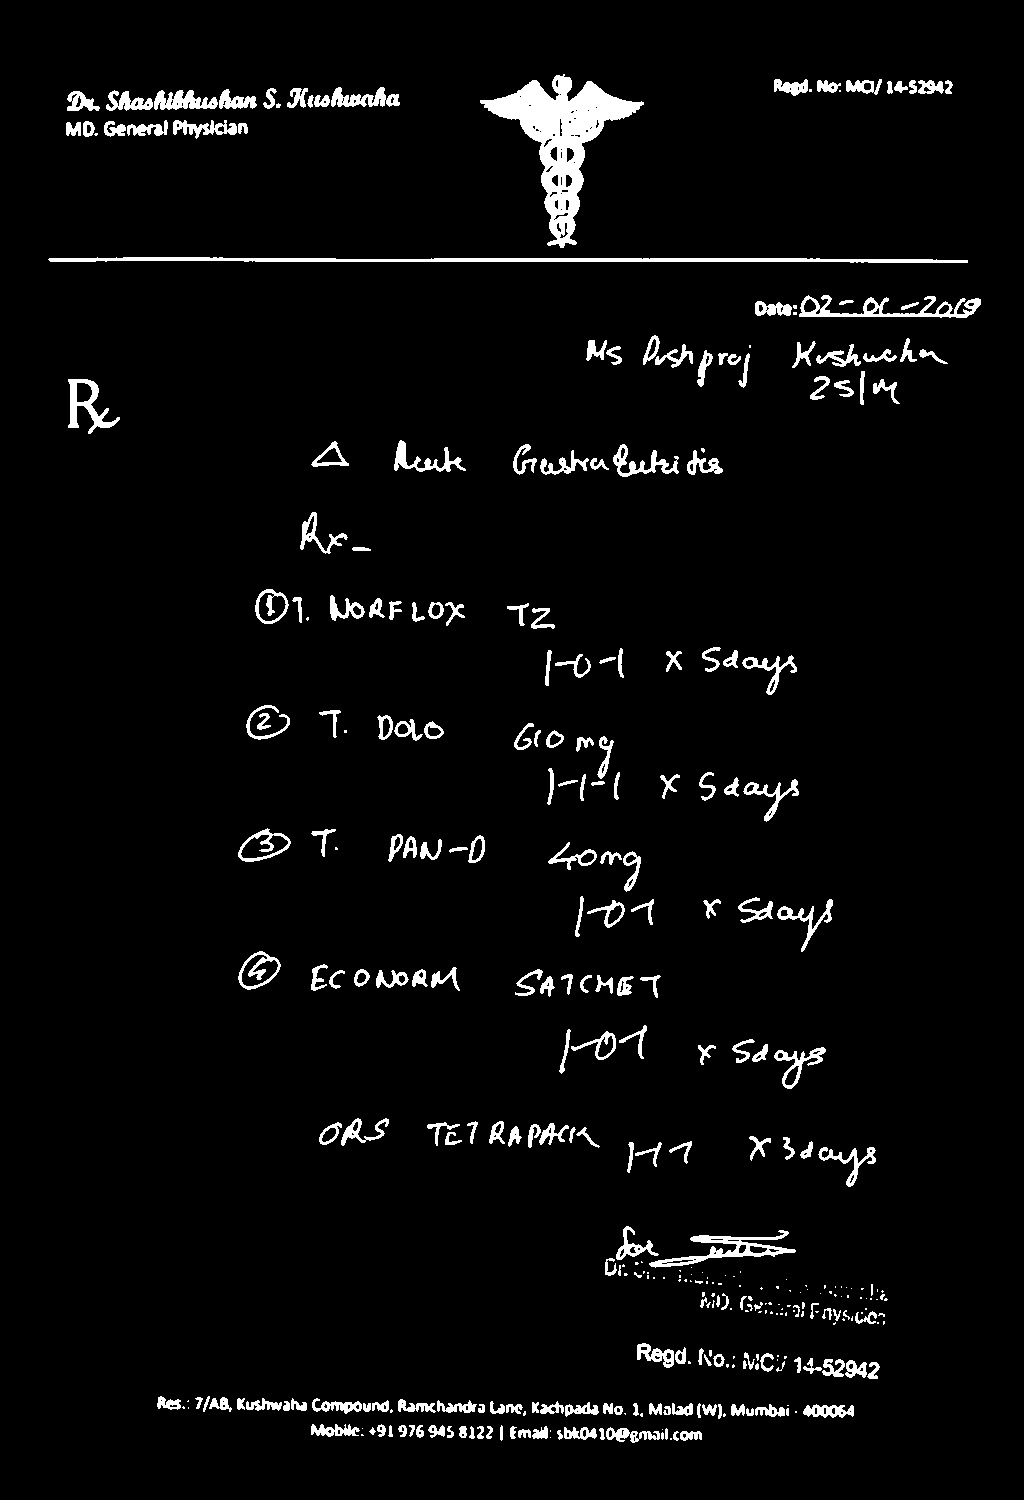 Dr. Shashibhushan S. Kushwaha
MD. General Physician
Regd. No: MCI/ 14-52942
Date: 02-01-2019
Ms Pushpraj Kushwaha
25/M
Rx
Δ Acute Gastra Eutritis
Rx-
① T. NORFLOX TZ
1-0-1 x 5days
② T. DOLO 610 mg
1-1-1 x 5days
③ T. PAN-D 40mg
1-0-1 x 5days
④ ECONORM SATCHET
1-0-1 x 5days
ORS TETRAPACK 1-1-1 x 3days
for
MD. General Physician
Regd. No.: MCI/ 14-52942
Res.: 7/AB, Kushwaha Compound, Ramchandra Lane, Kachpada No. 1, Malad (W), Mumbai - 400064
Mobile: +91 976 945 8122 | Email: sbk0410@gmail.com